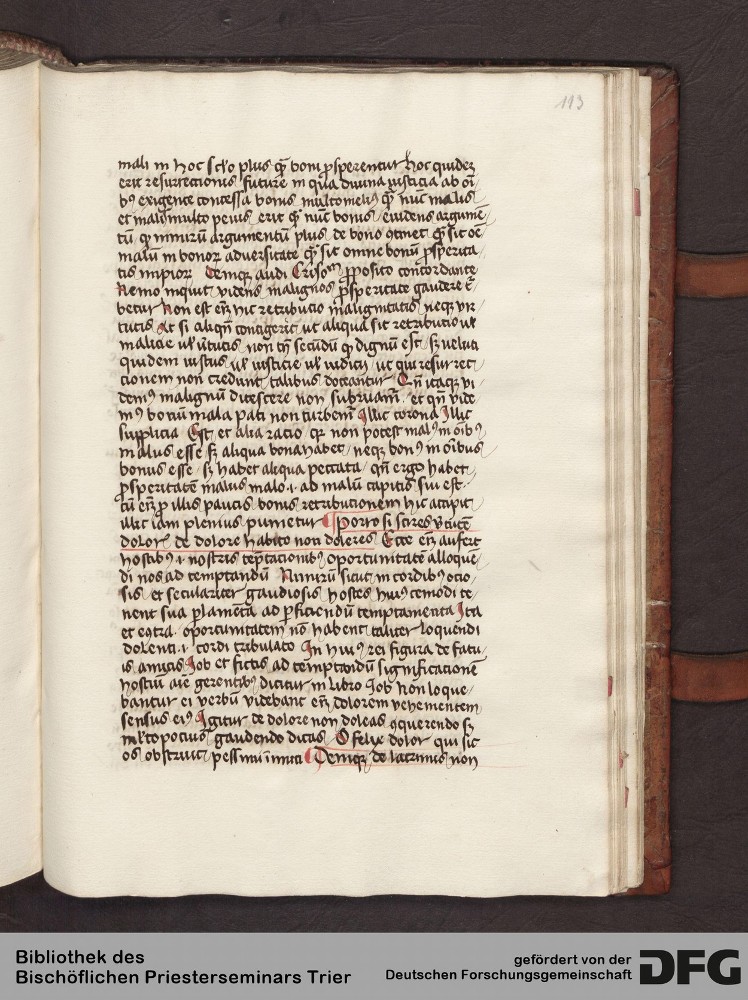 113
mali in hoc sclo plus qͣ boni ꝓsperentur hoc quidez
erit resurrectionis future in qua diuina iusticia ab oi
bꝰ exigente concessa bonis multo meliꝰ qͣ nūc malis
et malis multo peius erit qͣ nūc bonis euidens argumē
tū ꝙ nimirū argumentū plus de bono ꝯtinet qͣ sit oē
malū in bonoꝝ aduersitate qͣ sit omne bonū ꝓsperita
tis impioꝝ Deniqꝫ audi Crisoᵐ ꝓposito concordante
Nemo inquit videns malignos ꝓsperitate gaudere
betur Non est eī hic retributio malignitatis neqꝫ vir
tutis At si aliqn̄ contigerit ut aliqua sit retributio ul
malicie ul virtutis non tn̄ secūdū ꝙ dignū est sꝫ veluti
quidem iustus ul iusticie ul iudicij ut qui resurrec
cionem non credunt talibus doceantur Qn̄ itaqꝫ vi
demꝰ malignū ditescere non subruam̄ et qn̄ vide
mꝰ bonū mala pati non turbem̄ Illic corona Illic
supplicia Est et alia racio qꝛ non potest malꝰ in oībꝰ
malus esse sꝫ aliqua bona habet neqꝫ bonꝰ in oībus
bonus esse sꝫ habet aliqua peccata qn̄ ergo habet
ꝓsperitatē malus malo .i. ad malū capitis sui est
cū eī ꝓ illis paucis bonis retributionem hic accipit
illic iam plenius punietur Porro si scires vtiꝫ
dolor de dolore habito non doleres Ecce eī aufert
hostibꝰ .i. nostris teptacionibꝰ oportunitatē alloquē
di nos ad temptandū Nimirū sicut in cordibꝰ ocio
sis et seculariter gaudiosis hostes huiꝰcemodi te
nent sua ꝑlamēta ad ꝑficiendū temptamenta Ita
et eꝯtra oportunitatem nō habent taliter loquendi
dolenti .i. cordi tribulato In huiꝰ rei figura de fatu
is amicis Job et fictis ad temptandū significationē
hostiū aīe gerentibꝰ dicitur in libro Job Non loque
bantur ei verbū videbant eī dolorem vehementem
sensus eiꝰ Igitur de dolore non doleas ꝯquerendo sꝫ
mlto pocius gaudendo dicas O felix dolor qui sic
os obstruit pessimi inimici Deniqꝫ de lacrimis non
Bibliothek des
Bischöflichen Priesterseminars Trier
gefördert von der
Deutschen Forschungsgemeinschaft
DFG